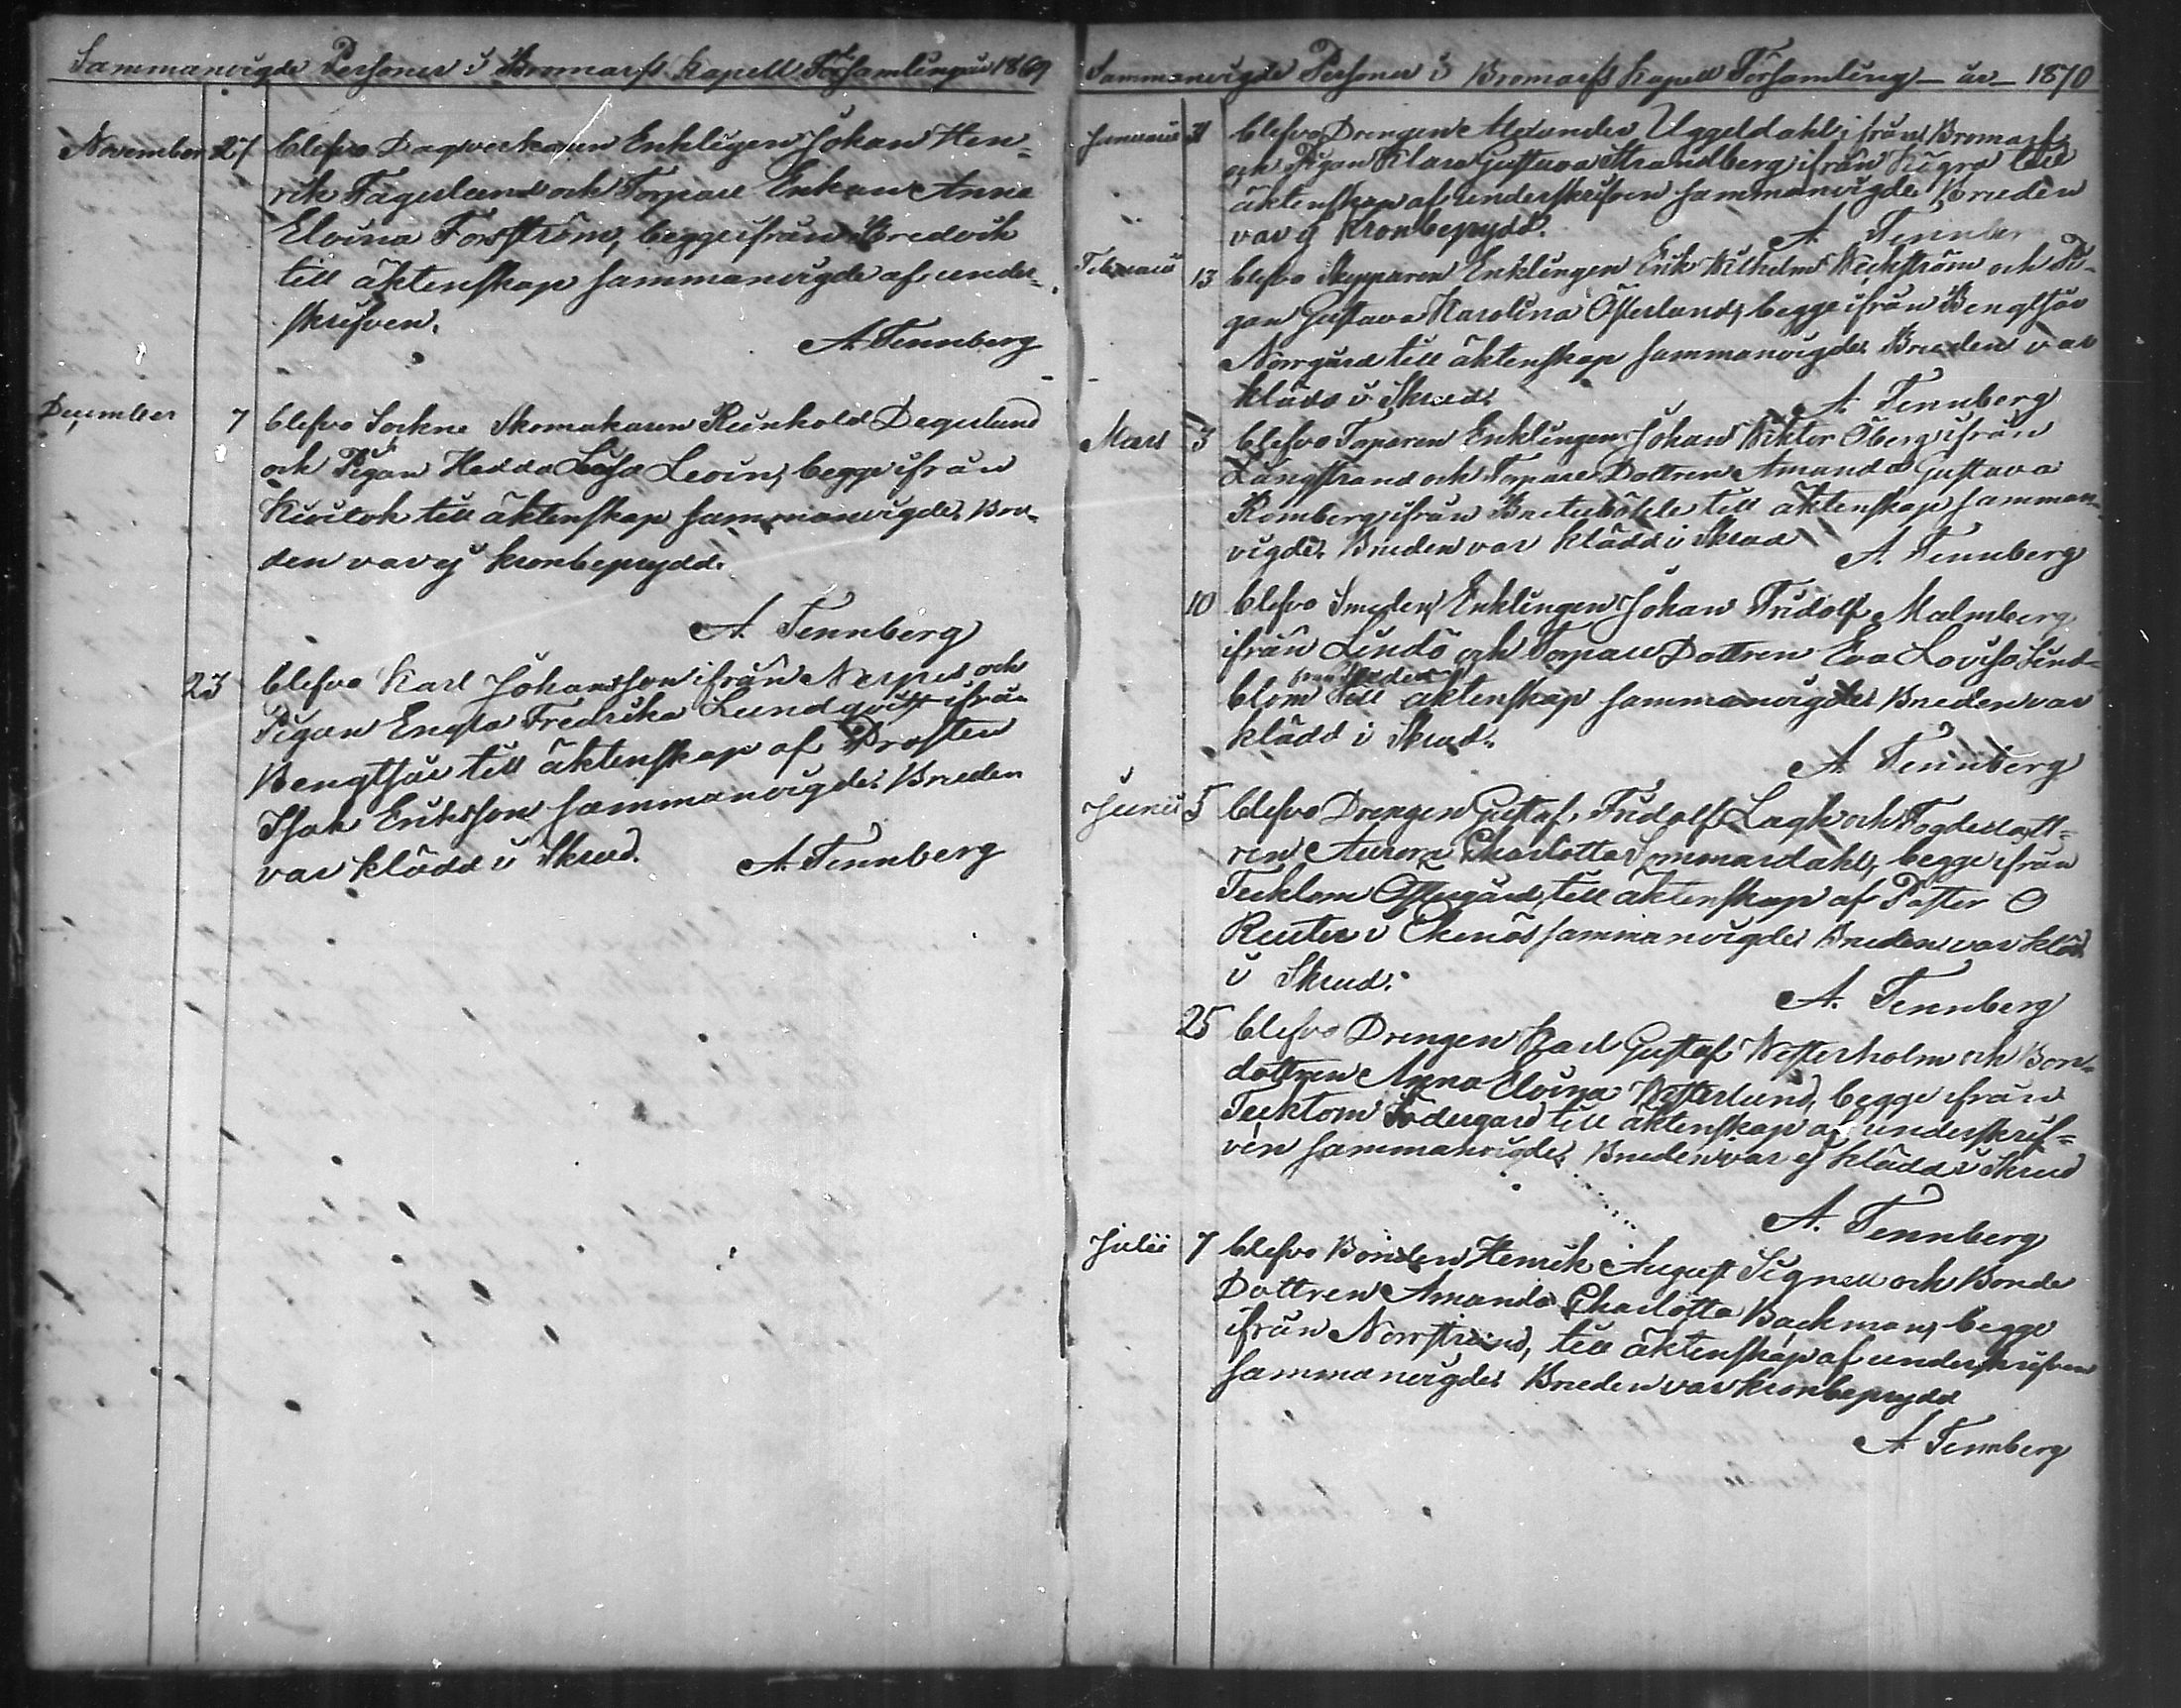 Sammanvigde Personer i Bromarfs Kapell Församling år 1869
November 27 blefvo Dagverkaren Enklingen Johan Hen=
rik Fagerlund och Torpare Enkan Anna
Elvina Forsström, begge ifrån Bredvik
till äktenskap sammanvigde af under=
skrifven.
A. Tennberg
December 7 blefvo Sockne Skomakaren Reinhold Degerlund
och Pigan Hedda Lovisa Levin, begge ifrån
till äktenskap sammanvigde. Bru=
den var ej kronbeprydd.
A. Tennberg
23 blefvo Karl Johansson ifrån Nespus och
Pigan Engla Fredrika Lundqvist ifrån
Bengtsår till äktenskap af Prosten
Isak Eriksson sammanvigde. Bruden
var klädd i Skrud. A. Tennberg
Sammanvigde Personer i Bromarfs Kapell Församling - år - 1870
Januarii 31 blefvo Drengen Alexander Uggeldahl ifrån Bromarf
och Pigan Klara Gustava Strandberg ifrån till
äktenskap af underskrifven sammanvigde. Bruden
var ej Kronbeprydd. A. Tennberg
Februarii 13 blefvo Skepparen Enklingen Erik Wilhelm Weckström och Pi-
gan Gustava Karolina Österlund, begge ifrån Bengtsår
Norrgård till äktenskap sammanvigde. Bruden var
klädd i Skrud. A. Tennberg
Mars 3 blefvo Toparen Enklingen Johan Viktor Öberg ifrån
Långstrand och Torpare Dottren Amanda Gustava
Romberg ifrån till äktenskap samman-
vigde. Bruden var klädd i Skrud A. Tennberg
10 blefvo Smeden Enklingen Johan Fridolf Malmberg
ifrån Lindö och Torpare Dottren Eva Lovisa Lind-
blom till äktenskap sammanvigde. Bruden var
klädd i Skrud.
A. Tennberg
Junii 5 blefvo Drengen Gustaf Fridolf Lagk och Fogdedott=
ren Aurora Charlotta Sommardahl, begge ifrån
Tecktom Östergård, till äktenskap af Pastor O
Reuter i Ekenäs sammanvigde. Bruden var kläd
i Skrud.
A. Tennberg
25 blefvo Drengen Karl Gustaf Westerholm och Bon-
dottren Anna Elvina Westerlund, begge ifrån
Tecktom Södergård till äktenskap af underskrif=
ven sammanvigde. Bruden var ej klädd i Skrud
A. Tennberg
Julii 7 blefvo Bonden Henrik August Signell och Bonde
Dottren Amanda Charlotta Backman, begge
ifrån Norrstrand, till äktenskap af underskrifven
sammanvigde. Bruden var kronbeprydd
A. Tennberg